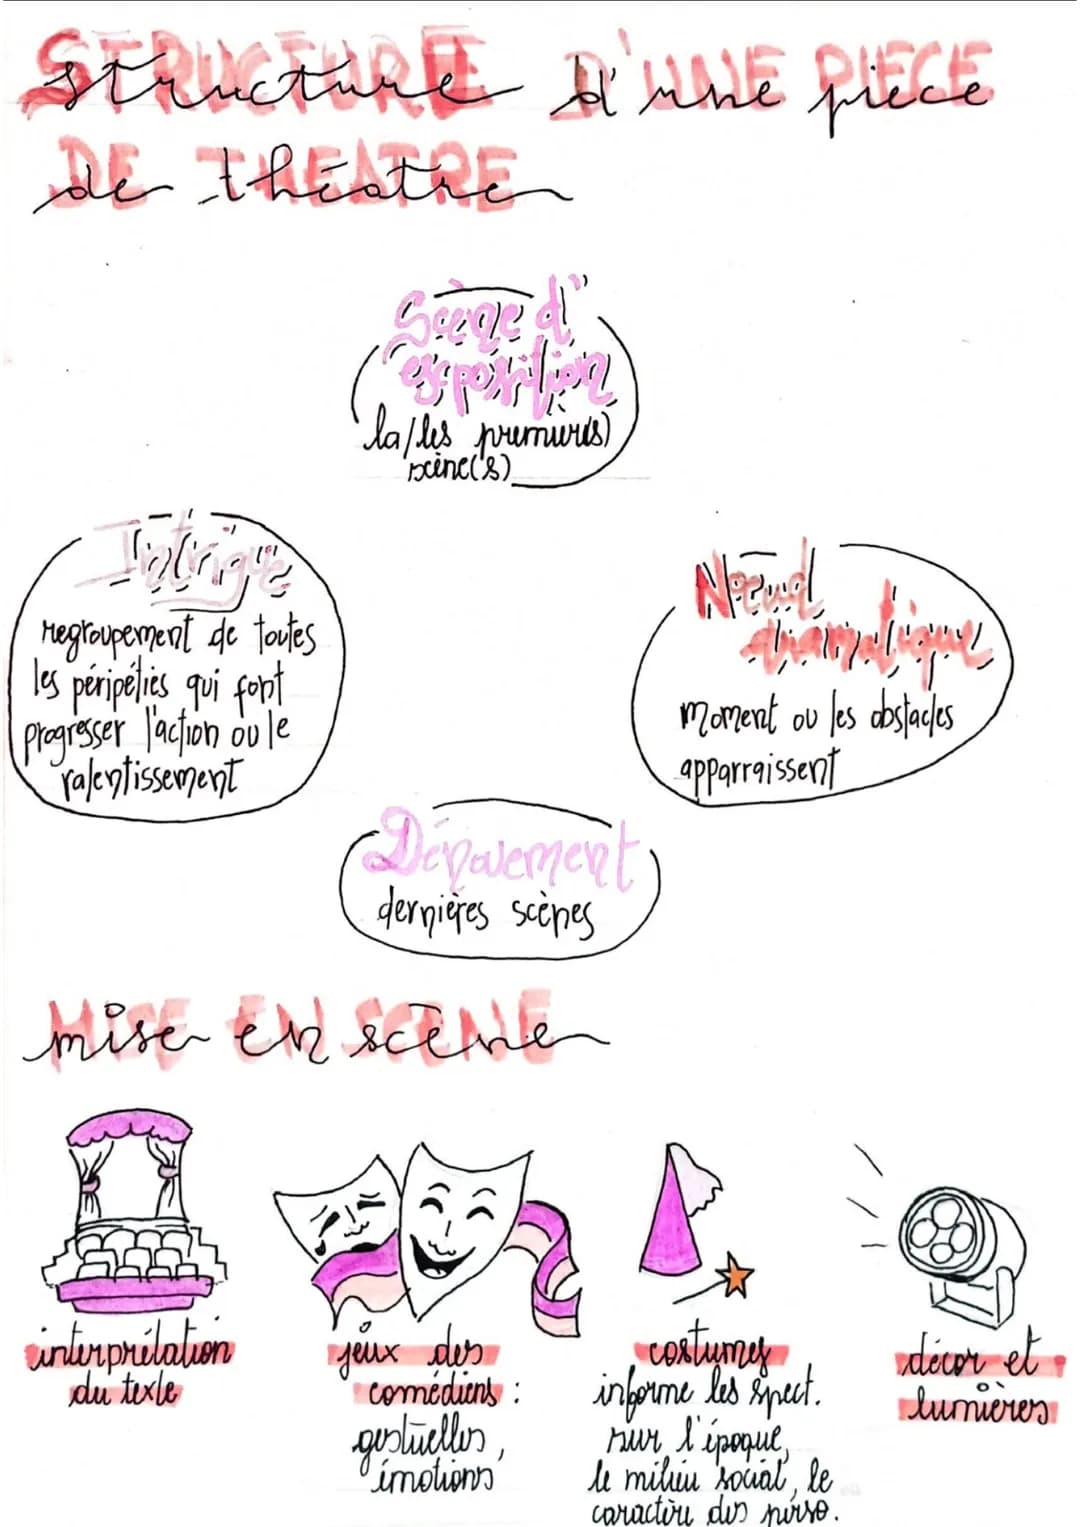 structure d'une pièce
de théâtre
Scène d'
exposition
la/les première(s)
scène(s)
Intrigue
regroupement de toutes
les péripéties qui font
progresser l'action ou le
ralentissement
Nœud
dramatique
moment ou les obstacles
apparraissent
Dénouement
dernières scènes
mise en scène
interprétation
du texte
jeux des
comédiens :
gestuelles,
émotions
costumes
informe les spect.
sur l'époque,
le milieu social, le
caractère des perso.
décor et
lumières